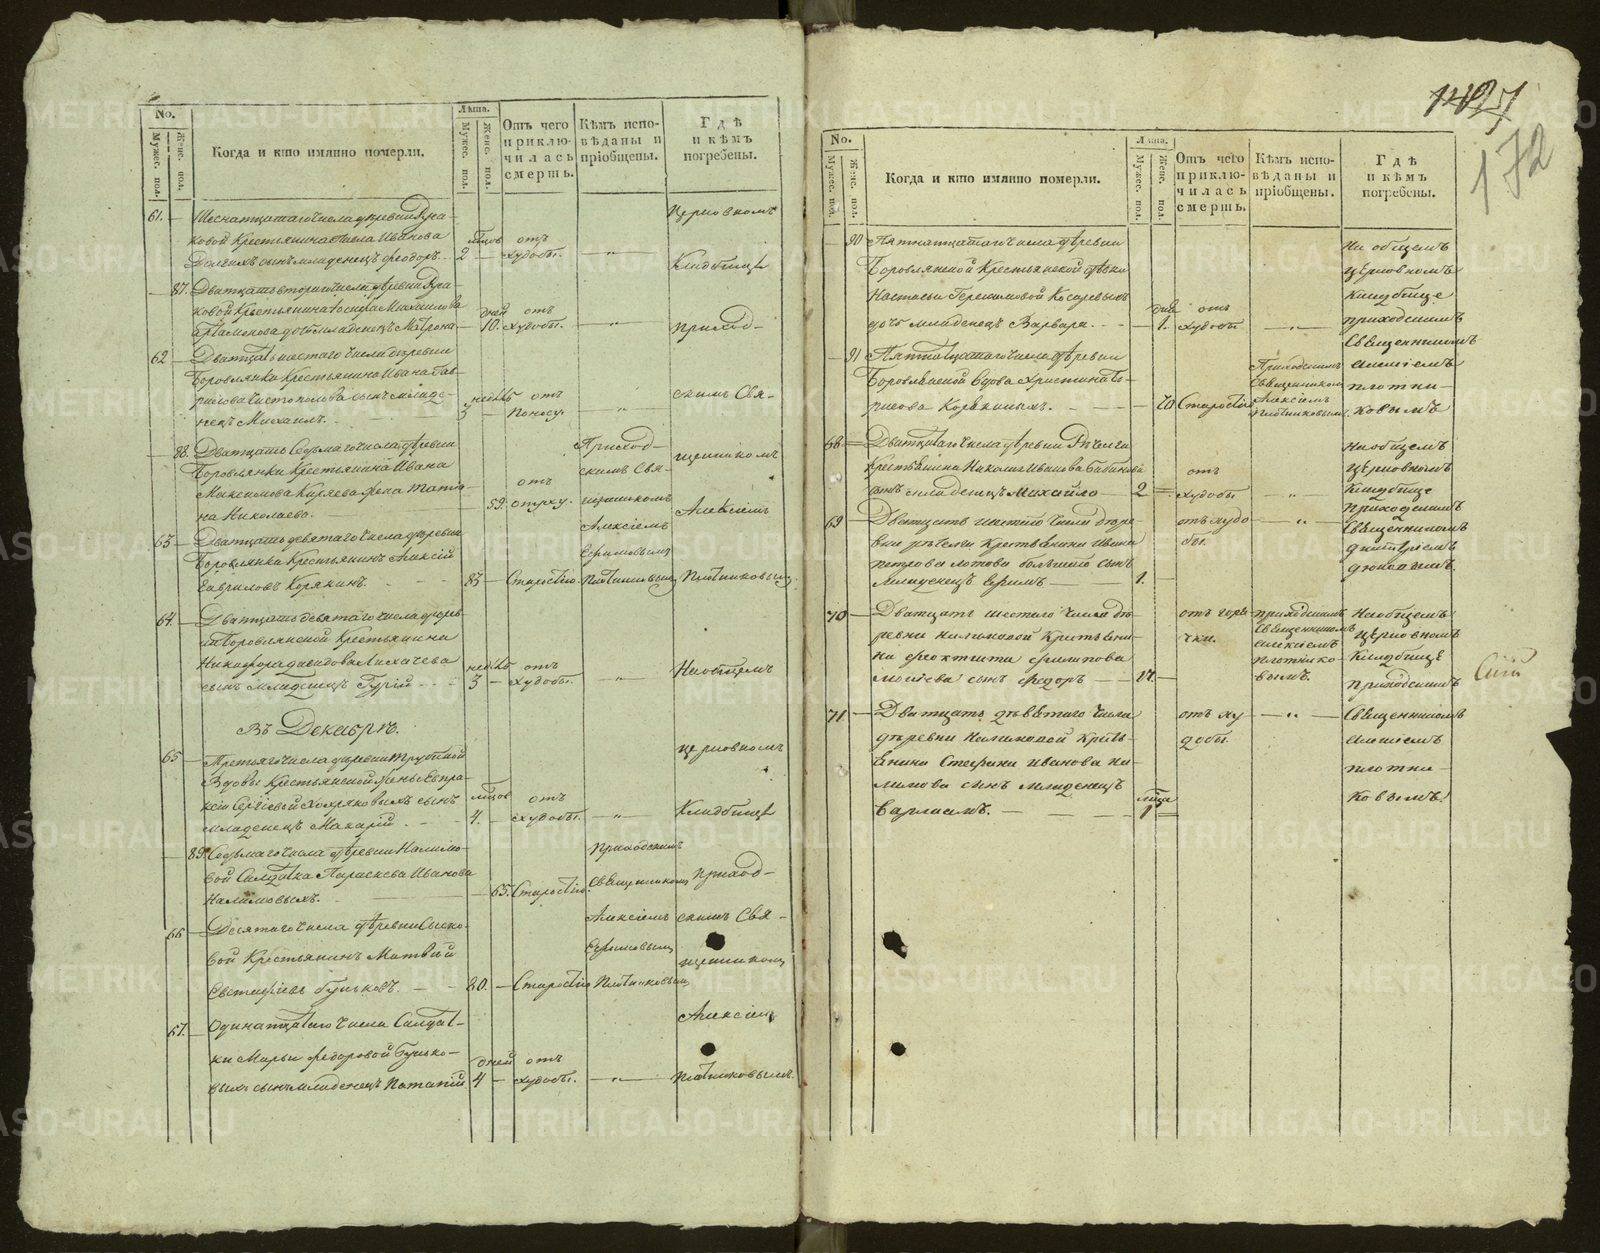 No.
Мужес. пол.
Женс. пол.
Когда и кто имянно померли.
Лѣта.
Мужес. пол.
Женс. пол.
Отъ чего приклю-
чилась
смерть.
Кѣмъ испо-
вѣданы и
пріобщены.
Гдѣ
и кѣмъ
погребены.
61. Шеснатцатаго числа деревни
ковой Крестьянина Иванова
сынъ младенецъ Феодоръ. 2 отъ худобы.
Церковномъ
Кладбище
87. Дватцать втораго числа деревни
ковой Крестьянина Михаилова
дочь младенецъ Матрона 10. дней отъ худобы.
приход-
62 Дватцать шестаго числа деревни
Боровлянки Крестьянина Ивана Гав-
рилова сынъ младе-
нецъ Михаилъ. 3 отъ поносу.
скимъ Свя-
88. Дватцать седьмаго числа деревни
Боровлянки Крестьянина Ивана
Максимова Каряева жена Татіа-
на Николаева. 59. отъ
Приход-
скимъ Свя-
щенникомъ
Алексіемъ
Ефимовымъ
Плотниковымъ
щенникомъ
Алексіемъ
Плотниковымъ.
63 Дватцать девятаго числа деревни
Боровлянки Крестьянинъ Алексій
Гавриловъ Корякинъ. 83 Старостію.
64. Дватцать девятаго числа дерев-
ни Боровлянской Крестьянина
Никифора Давидова Лихачева
сынъ младенецъ Гурій 3 отъ худобы.
На общемъ
Въ Декабрѣ.
65 Третьяго числа деревни Трубиной
Вдовы Крестьянской жены Евпра-
ксіи Сергіевой Хохряковыхъ сынъ
младенецъ Макарій. 4. отъ худобы.
церковномъ
Кладбище
89. Седьмаго числа деревни Налимо-
вой Салдатка Параскева Иванова
Налимовыхъ. 65. Старостію.
Приходскимъ
Священникомъ
Алексіемъ
Ефимовымъ
Плотниковымъ
Приход-
скимъ Свя-
щенникомъ
Алексіемъ
Плотниковымъ.
66 Десятаго числа деревни Сыско-
вой Крестьянинъ Матвѣй
Евстафіевъ Буньковъ. 80. Старостію
67. Одинатцатаго числа Салдат-
ки Марьи Федоровой Бунько-
выхъ сынъ младенецъ Потапій 4 дней отъ худобы.
172
No.
Мужес. пол.
Женс. пол.
Когда и кто имянно померли.
Лѣта.
Мужес. пол.
Женс. пол.
Отъ чего приклю-
чилась
смерть.
Кѣмъ испо-
вѣданы и
пріобщены.
Гдѣ
и кѣмъ
погребены.
90 Пятнатцатаго числа деревни
Боровлянской Крестьянской дѣвки
Настасьи Герасимовой Косаревыхъ
дочь младенецъ Варвара. 1. отъ худобы
На общемъ
церковномъ
Кладбище
приходскимъ
Священникомъ
Алексіемъ
Плотни-
ковымъ
91 числа деревни
Боровлянской Вдова Христина Бо-
рисова Корякиныхъ. 70 Старостію
Приходскимъ
Священникомъ
Алексіемъ
Плотниковымъ.
68. Дватцатаго числа деревни Рѣчелги
Крестьянина Николая Иванова Бабинова
сынъ младенецъ Михайло 2 отъ худобы
На общемъ
церковномъ
Кладбище
приходскимъ
Священникомъ
Димитріемъ
69 Дватцать шестаго числа дере-
вни Рѣчелги Крестьянина Ивана
Петрова Лотова большаго сынъ
младенецъ Ефимъ 1. отъ худо-
бы.
70 Дватцать шестаго числа де-
ревни Налимовой Крестьяни-
на Феоктиста Филипова
сынъ Федоръ 17. отъ горя-
чки.
приходскимъ
Священникомъ
Алексіемъ
Плотнико-
вымъ.
На общемъ
церковномъ
Кладбище
приходскимъ
Священникомъ
Алексіемъ
Плотни-
ковымъ.
71 Дватцать девятаго числа
деревни Налимовой Кресть-
янина Стефана Иванова На-
лимова сынъ младенецъ
Варлаамъ. 1 отъ ху-
добы.